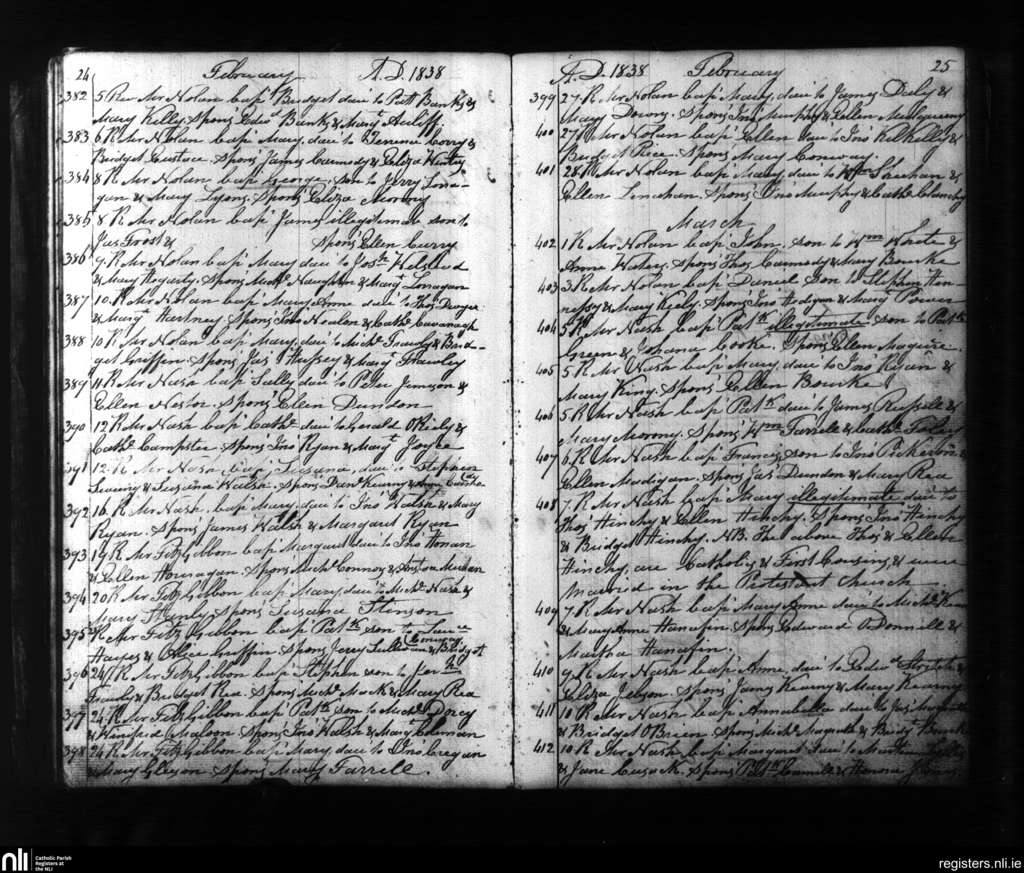 24 February A.D. 1838
382 5 Rev Mr Nolan bap.d Bridget dau.r to Patt Banks &
Mary Kelly. Spons. Edw.d Banks & Marg.t
383 6 R Mr Nolan bap.d Mary dau.r to Terence &
Bridget Eustace. Spons. James Carmody & Eliza
384 8 R Mr Nolan bap.d George son to Jerry Lona-
gan & Mary Lyons. Spons. Eliza Morony
385 8 R Mr Nolan bap.d James illegitimate son to
Jas Frost & Spons. Ellen Curry
386 9 R Mr Nolan bap.d Mary dau.r to Jos.h
& Mary Hogarty. Spons. Mich.l Naughton & Marg.t Lonagan
387 10 R Mr Nolan bap.d Mary Anne dau.r to Tho.s Dwyer
& Marg.t Hartney Spons. Jno Nealon & Cath.e Cavanagh
388 10 R Mr Nolan bap.d Mary dau.r to Mich.l Frawly & Brid-
get Griffin Spons. Jas Hussey & Marg.t Frawley
389 11 R Mr Nash bap.d Sally dau.r to Peter Jameson &
Ellen Nestor. Spons. Ellen Dundon
390 12 R Mr Nash bap.d Cath.e dau.r to Gerald &
Cath.e Spons. Jno Ryan & Marg.t Joyce
391 12 R Mr Nash bap.d Susana dau.r to Stephen
& Susana Walsh. Spons. Dan.l Kearny & Anne
392 16 R Mr Nash bap.d Mary dau.r to Jno Walsh & Mary
Ryan. Spons. James Walsh & Margaret Ryan
393 19 R Mr FitzGibbon bap.d Margaret dau.r to Jno Honan
& Ellen Houragan. Spons. Mich.l Connors & Meehan
394 20 R Mr FitzGibbon bap.d Mary dau.r to Mich.l Nash &
Mary Hanly Spons. Susana Stenson
395 R Mr FitzGibbon bap.d Pat.k son to
Hayes & Alice Griffin Spons. Jerry & Bridget
396 24 R Mr FitzGibbon bap.d Stephen son to
Frawly & Bridget Rea. Spons. Mich.l Mack & Mary Rea
397 24 R Mr FitzGibbon bap.d Pat.k son to Mich.l Darcy
& Winifred Maloon. Spons. Jno Walsh & Mary Coleman
398 24 R Mr FitzGibbon bap.d Mary dau.r to Jno Cregan
& Mary Spons. Mary Farrell.
A.D. 1838 February 25
399 27 R Mr Nolan bap.d Mary dau.r to James Daly &
Mary Downs. Spons. Jno Murphy & Ellen
400 27 R Mr Nolan bap.d Ellen dau.r to Jno Kilkelly &
Bridget Rice. Spons. Mary Conway.
401 28 R Mr Nolan bap.d Mary dau.r to Wm Sheehan &
Ellen Lenahan. Spons. Jno Murphy & Cath.e Clanchy
March
402 1 R Mr Nolan bap.d John son to Wm White &
Anne Waters. Spons. Tho.s Carmody & Mary Bourke
403 3 R Mr Nolan bap.d Daniel son to Stephen Hen-
nessy & Mary Kiely Spons. Jno Hedigan & Mary Power
404 5 R Mr Nash bap.d Pat.k illegitimate son to Pat.k
Green & Johanna Cooke. Spons. Ellen Maguire.
405 5 R Mr Nash bap.d Mary dau.r to Jno Ryan &
Mary King. Spons. Ellen Bourke
406 5 R Mr Nash bap.d Pat.k dau.r to James Russell &
Mary Morony. Spons. Wm Farrell & Cath.e
407 6 R Mr Nash bap.d Francis son to Jno Pickerton &
Ellen Madigan. Spons. Jas Dundon & Mary Rea
408 7 R Mr Nash bap.d Mary illegitimate dau.r to
Tho.s Hinchy & Ellen Hinchy. Spons. Jno Hinchy
& Bridget Hinchy. NB. The above Tho.s & Ellen
Hinchy are Catholics & First Cousins, & were
married in the Protestant Church
409 7 R Mr Nash bap.d Mary Anne dau.r to Mich.l
& Mary Anne Hanafin. Spons. Edward O'Donnell &
Martha Hanafin.
410 9 R Mr Nash bap.d Anne dau.r to Edw.d Stretch &
Eliza Spons. James Kearny & Mary Kearny
411 10 R Mr Nash bap.d Annabella dau.r to Jas
& Bridget O'Brien Spons. Mich.l & Bridg.t Bourke
412 10 R Mr Nash bap.d Margaret dau.r to
& Jane Cusack. Spons. Pat.k & Honora
nli Catholic Parish
Registers at
the NLI
registers.nli.ie